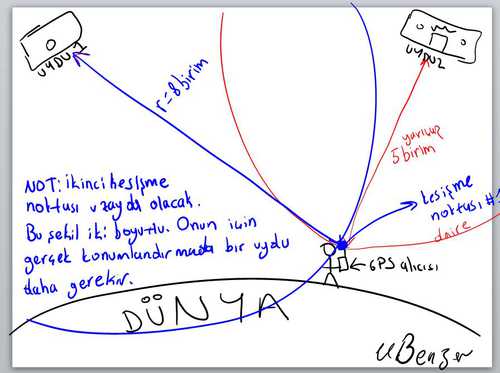 UYDU1
UYDU2
r=8birim
yarıçap
5birim
NOT: ikinci kesişme
noktası uzayda olacak.
Bu şekil iki boyutlu. Onun için
gerçek konumlandırmada bir uydu
daha gerekir.
kesişme
noktası #1
daire
GPS alıcısı
DÜNYA
UBenzer